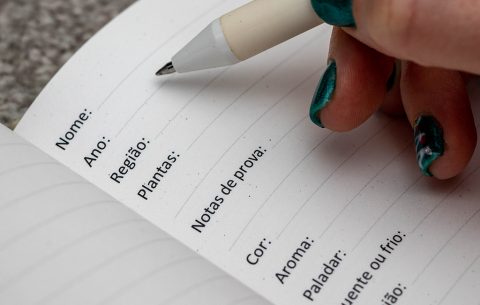 Nome:
Ano:
Região:
Plantas:
Notas de prova:
Cor:
Aroma:
Paladar:
uente ou frio:
ião: